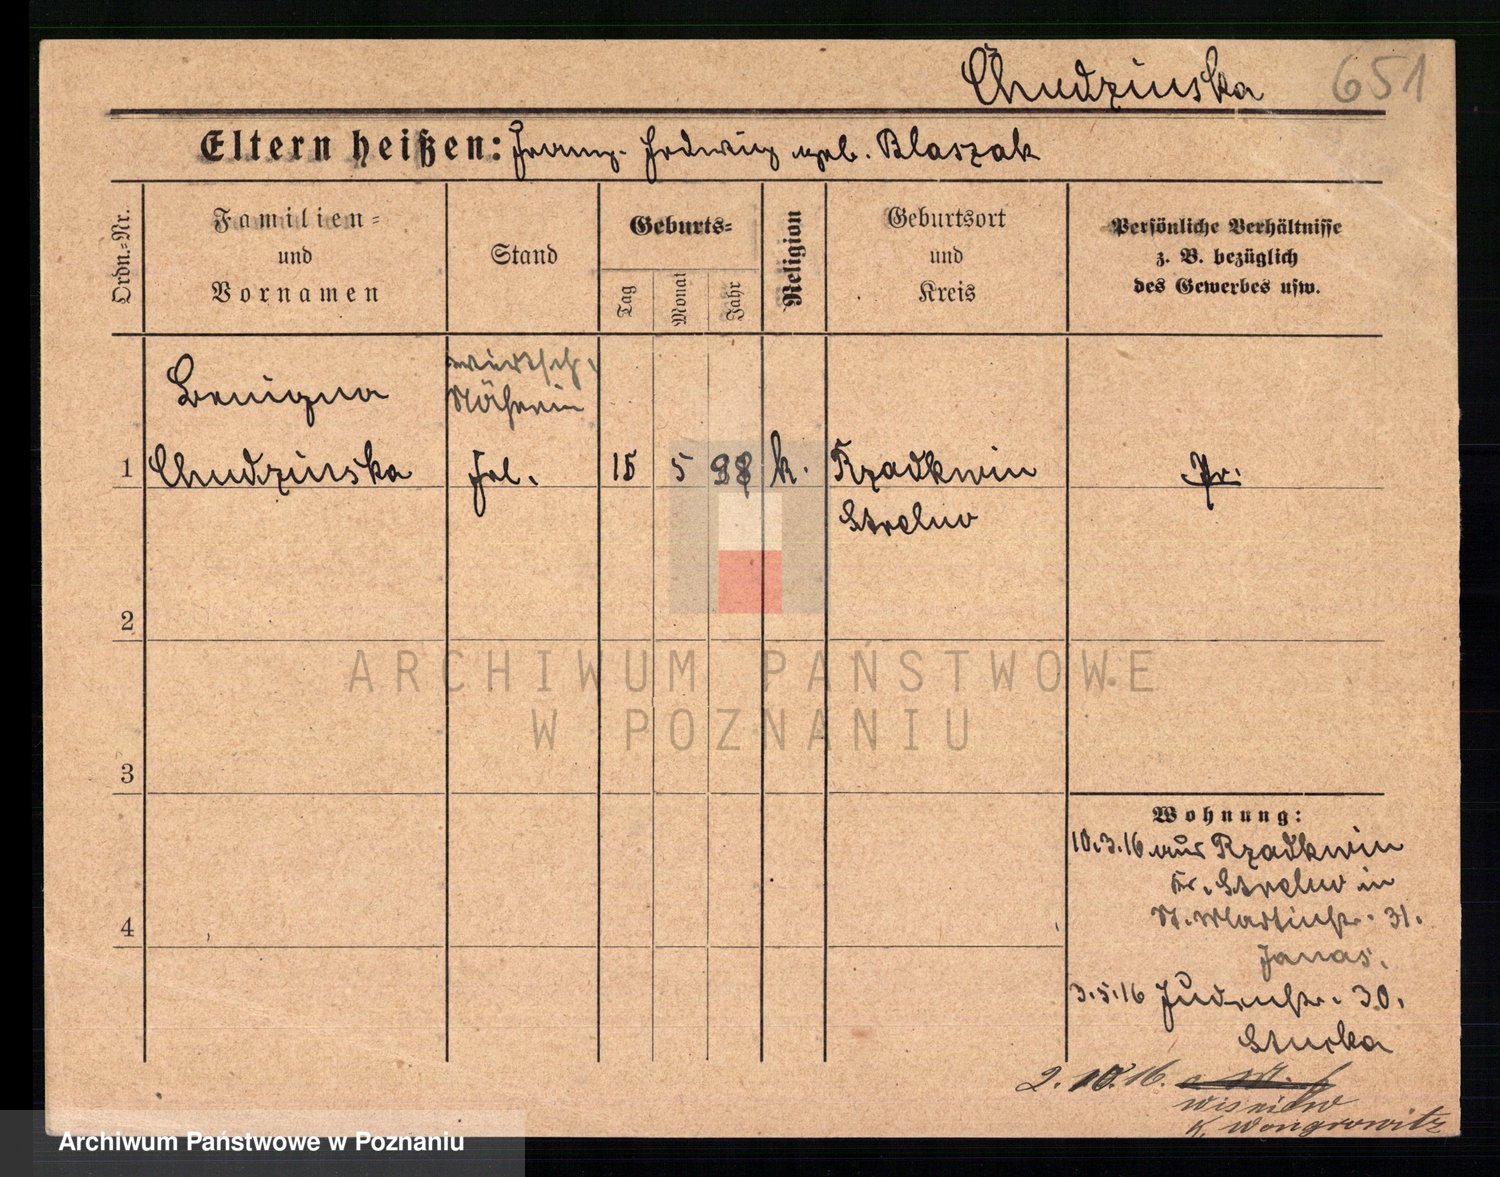 Chudzinska 651
Eltern heißen: Franz. Hedwig geb. Blaszak
Ordn.-Nr.
Familien-
und
Vornamen
Stand
Geburts-
Tag
Monat
Jahr
Religion
Geburtsort
und
Kreis
Persönliche Verhältnisse
z. B. bezüglich
des Gewerbes usw.
Wirtsch.
Benigna
Näherin
1 Chudzinska
15 5 98 k. Rzadkwin
Pr.
Strelno
2
ARCHIWUM PAŃSTWOWE
W POZNANIU
3
Wohnung:
10.3.16 aus Rzadkwin
Kr. Strelno in
St. Martinstr. 31.
4
Janas.
3.5.16 Judenstr. 30.
2. 10. 16.
Wisniew
K. Wongrowitz
Archiwum Państwowe w Poznaniu